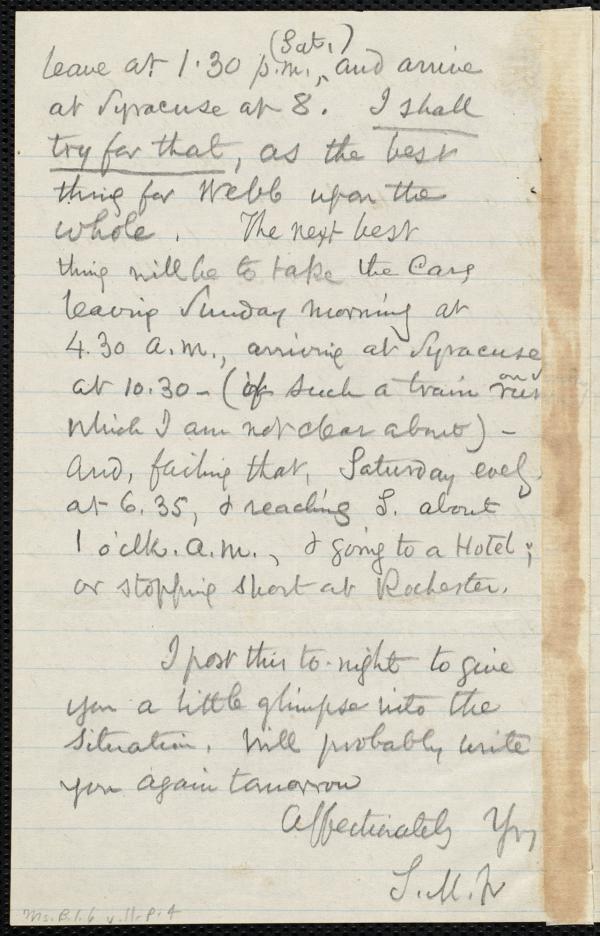 (Sat.)
leave at 1.30 p.m., and arrive
at Syracuse at 8. I shall
try for that, as the best
thing for Webb upon the
whole. The next best
thing will be to take the Cars
leaving Sunday morning at
4.30 a.m., arriving at Syracuse
at 10.30 - (if such a train
which I am not clear about) -
And, failing that, Saturday eveg.
at 6.35, & reaching S. about
1 o'clk. a.m., & going to a Hotel;
or stopping short at Rochester.
I post this to-night to give
you a little glimpse into the
situation. Will probably write
you again tomorrow
Affectionately Yrs,
S. M. Jr
Ms. B.1.6 v.11. p.4